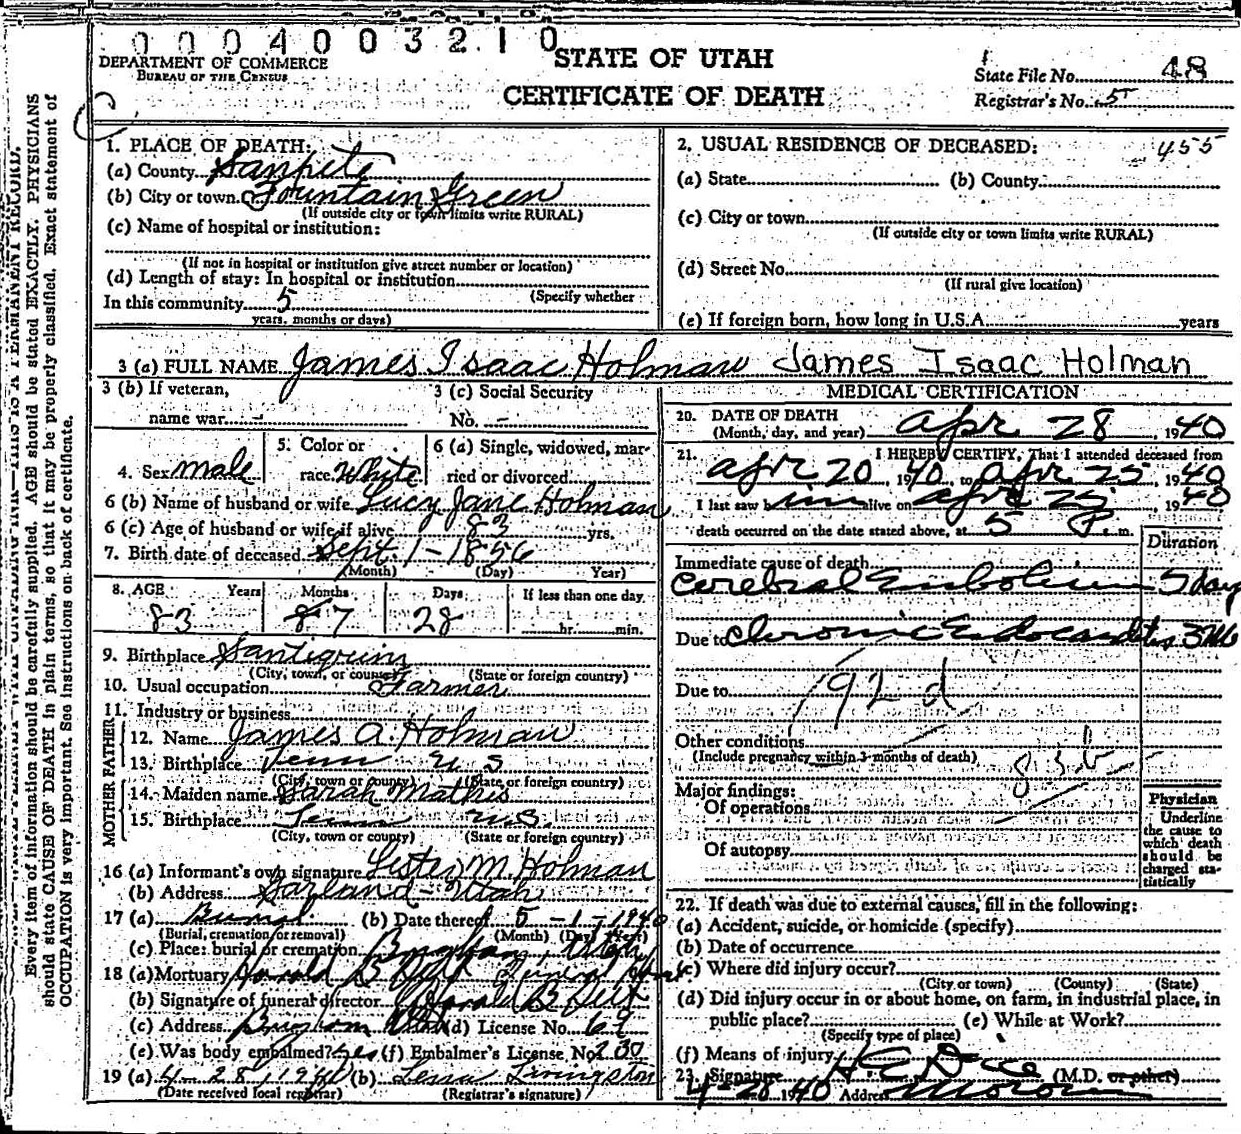 0004003210
STATE OF UTAH
DEPARTMENT OF COMMERCE
BUREAU OF THE CENSUS
CERTIFICATE OF DEATH
State File No. 48
Registrar's No. 5
Every item of information should be carefully supplied. AGE should be stated EXACTLY. PHYSICIANS
should state CAUSE OF DEATH in plain terms, so that it may be properly classified. Exact statement of
OCCUPATION is very important. See instructions on back of certificate.
1. PLACE OF DEATH:
(a) County Sanpete
(b) City or town Fountain Green
(If outside city or town limits write RURAL)
(c) Name of hospital or institution:
(If not in hospital or institution give street number or location)
(d) Length of stay: In hospital or institution
(Specify whether
In this community 5
years, months or days)
2. USUAL RESIDENCE OF DECEASED: 455
(a) State (b) County
(c) City or town
(If outside city or town limits write RURAL)
(d) Street No.
(If rural give location)
(e) If foreign born, how long in U.S.A. years
3 (a) FULL NAME James Isaac Holman James Isaac Holman
3 (b) If veteran,
name war -
3 (c) Social Security
No. -
4. Sex male
5. Color or
race White
6 (a) Single, widowed, mar-
ried or divorced
6 (b) Name of husband or wife Lucy Jane Holman
6 (c) Age of husband or wife if alive 83 yrs.
7. Birth date of deceased Sept. 1-1856
(Month) (Day) Year)
8. AGE Years Months Days If less than one day
83 7 28 hr. min.
9. Birthplace
(City, town, or county) (State or foreign country)
10. Usual occupation Farmer
11. Industry or business
FATHER
12. Name James A. Holman
13. Birthplace Tenn U S
(City, town or county) (State or foreign country)
MOTHER
14. Maiden name Sarah Mathis
15. Birthplace Tenn U.S.
(City, town or county) (State or foreign country)
16 (a) Informant's own signature Lester M. Holman
(b) Address Garland-Utah
17 (a) Burial (b) Date thereof 5-1-1940
(Burial, cremation or removal) (Month) (Day) (Year)
(c) Place: burial or cremation Utah
18 (a) Mortuary Harold B Felt Funeral Home
(b) Signature of funeral director Harold B Felt
(c) Address Brigham Utah (d) License No. 69
(e) Was body embalmed? Yes (f) Embalmer's License No. 230
19 (a) 4-28, 1940 (b) Lena Livingston
(Date received local registrar) (Registrar's signature)
MEDICAL CERTIFICATION
20. DATE OF DEATH
(Month, day, and year) Apr 28, 1940
21. I HEREBY CERTIFY, That I attended deceased from
Apr 20, 1940, to Apr 25, 1940
I last saw him alive on Apr 25, 1940
death occurred on the date stated above, at 5 P. m.
Duration
Immediate cause of death
Cerebral Embolism 5 days
Due to Chronic Endocarditis
Due to
92 d
Other conditions
(Include pregnancy within 3 months of death)
83b
Major findings:
Of operations
Of autopsy
Physician
Underline
the cause to
which death
should be
charged sta-
tistically
22. If death was due to external causes, fill in the following:
(a) Accident, suicide, or homicide (specify)
(b) Date of occurrence
(c) Where did injury occur?
(City or town) (County) (State)
(d) Did injury occur in or about home, on farm, in industrial place, in
public place? (e) While at Work?
(Specify type of place)
(f) Means of injury
23. Signature (M.D. or other)
4-28 1940 Address Moroni